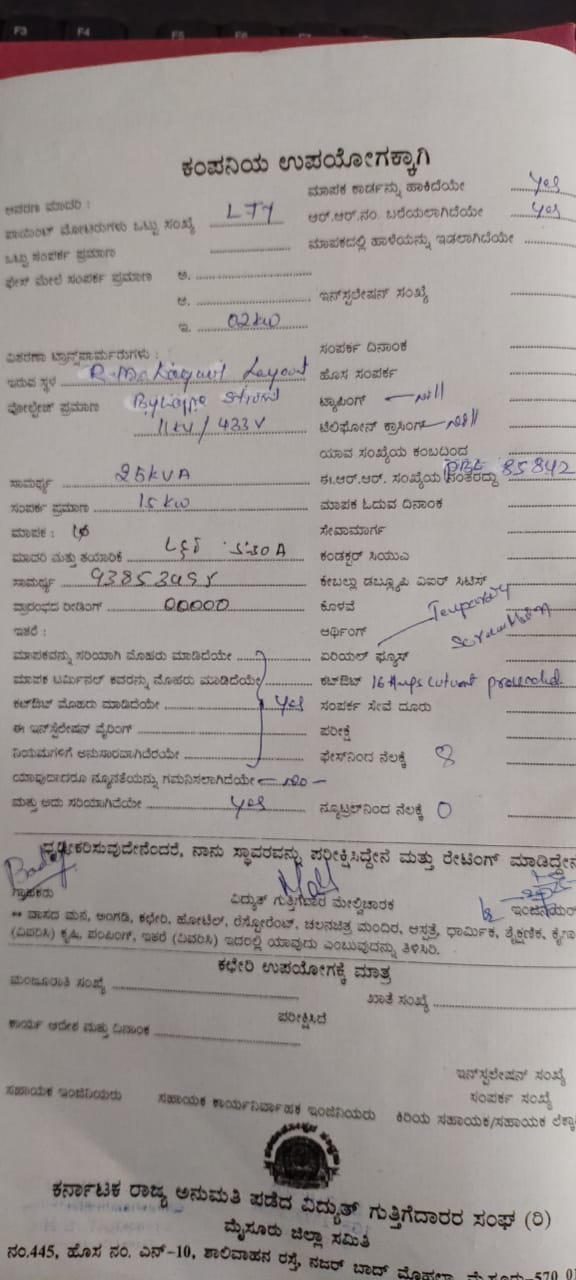 F3 F4 F5 F6 F7 F8
ಕಂಪನಿಯ ಉಪಯೋಗಕ್ಕಾಗಿ
ಆವರಣ ಮಾದರಿ :
ಮಾಪಕ ಕಾರ್ಡನ್ನು ಹಾಕಿದೆಯೇ Yes
ಪಾಯಿಂಟ್ ಮೋಟರುಗಳು ಒಟ್ಟು ಸಂಖ್ಯೆ LT1
ಆರ್.ಆರ್.ನಂ. ಬರೆಯಲಾಗಿದೆಯೇ Yes
ಒಟ್ಟು ಸಂಪರ್ಕ ಪ್ರಮಾಣ
ಮಾಪಕದಲ್ಲಿ ಹಾಳೆಯನ್ನು ಇಡಲಾಗಿದೆಯೇ
ಫೇಸ್ ಮೇಲೆ ಸಂಪರ್ಕ ಪ್ರಮಾಣ ಅ.
ಆ.
ಇನ್‌ಸ್ಟಲೇಷನ್ ಸಂಖ್ಯೆ
ಇ. 02kw
ವಿತರಣಾ ಟ್ರಾನ್ಸ್‌ಫಾರ್ಮರುಗಳು :
ಸಂಪರ್ಕ ದಿನಾಂಕ
ಇರುವ ಸ್ಥಳ Layout
ಹೊಸ ಸಂಪರ್ಕ
ವೋಲ್ಟೇಜ್ ಪ್ರಮಾಣ
ಟ್ಯಾಪಿಂಗ್ Nill
11kv/433V
ಟೆಲಿಫೋನ್ ಕ್ರಾಸಿಂಗ್ Nill
ಯಾವ ಸಂಖ್ಯೆಯ ಕಂಬದಿಂದ
ಸಾಮರ್ಥ್ಯ 25kVA
ಈ.ಆರ್.ಆರ್. ಸಂಖ್ಯೆಯ ನಂತರದ್ದು 85842
ಸಂಪರ್ಕ ಪ್ರಮಾಣ 15kw
ಮಾಪಕ ಓದುವ ದಿನಾಂಕ
ಮಾಪಕ :
ಸೇವಾಮಾರ್ಗ
ಮಾದರಿ ಮತ್ತು ತಯಾರಿಕೆ
ಕಂಡಕ್ಟರ್ ಸಿಯುಎ
ಸಾಮರ್ಥ್ಯ
ಕೇಬಲ್ಲು ಡಬ್ಲ್ಯೂಪಿ ಏಐರ್ ಸಿಟಿಸ್
ಪ್ರಾರಂಭದ ರೀಡಿಂಗ್ 00000
ಕೊಳವೆ
ಇತರೆ :
ಆರ್ಥಿಂಗ್ Temporary
ಮಾಪಕವನ್ನು ಸರಿಯಾಗಿ ಮೊಹರು ಮಾಡಿದೆಯೇ
ಏರಿಯಲ್ ಫ್ಯೂಸ್
ಮಾಪಕ ಟರ್ಮಿನಲ್ ಕವರನ್ನು ಮೊಹರು ಮಾಡಿದೆಯೇ
ಕಟ್‌ಔಟ್ 16 Amps cutout provided.
ಕಟ್‌ಔಟ್ ಮೊಹರು ಮಾಡಿದೆಯೇ Yes
ಸಂಪರ್ಕ ಸೇವೆ ದೂರು
ಈ ಇನ್‌ಸ್ಟಲೇಷನ್ ವೈರಿಂಗ್
ಪರೀಕ್ಷೆ
ನಿಯಮಗಳಿಗೆ ಅನುಸಾರವಾಗಿದೆಯೇ
ಫೇಸ್‌ನಿಂದ ನೆಲಕ್ಕೆ 8
ಯಾವುದಾದರೂ ನ್ಯೂನತೆಯನ್ನು ಗಮನಿಸಲಾಗಿದೆಯೇ - no -
ಮತ್ತು ಅದು ಸರಿಯಾಗಿದೆಯೇ Yes
ನ್ಯೂಟ್ರಲ್‌ನಿಂದ ನೆಲಕ್ಕೆ 0
ಧೃಢೀಕರಿಸುವುದೇನೆಂದರೆ, ನಾನು ಸ್ಥಾವರವನ್ನು ಪರೀಕ್ಷಿಸಿದ್ದೇನೆ ಮತ್ತು ರೇಟಿಂಗ್ ಮಾಡಿದ್ದೇನೆ
ಗ್ರಾಹಕರು ವಿದ್ಯುತ್ ಗುತ್ತಿಗೆದಾರ ಮೇಲ್ವಿಚಾರಕ ಇಂಜಿನಿಯರ್
** ವಾಸದ ಮನೆ, ಅಂಗಡಿ, ಕಛೇರಿ, ಹೋಟೆಲ್, ರೆಸ್ಟೋರೆಂಟ್, ಚಲನಚಿತ್ರ ಮಂದಿರ, ಆಸ್ಪತ್ರೆ, ಧಾರ್ಮಿಕ, ಶೈಕ್ಷಣಿಕ, ಕೈಗಾ
(ವಿವರಿಸಿ) ಕೃಷಿ, ಪಂಪಿಂಗ್, ಇತರೆ (ವಿವರಿಸಿ) ಇದರಲ್ಲಿ ಯಾವುದು ಎಂಬುವುದನ್ನು ತಿಳಿಸಿರಿ.
ಕಛೇರಿ ಉಪಯೋಗಕ್ಕೆ ಮಾತ್ರ
ಮಂಜೂರಾತಿ ಸಂಖ್ಯೆ ಖಾತೆ ಸಂಖ್ಯೆ
ಪರೀಕ್ಷಿಸಿದೆ
ಕಾರ್ಯ ಆದೇಶ ಮತ್ತು ದಿನಾಂಕ
ಇನ್‌ಸ್ಟಲೇಷನ್ ಸಂಖ್ಯೆ
ಸಂಪರ್ಕ ಸಂಖ್ಯೆ
ಸಹಾಯಕ ಇಂಜಿನಿಯರು ಸಹಾಯಕ ಕಾರ್ಯನಿರ್ವಾಹಕ ಇಂಜಿನಿಯರು ಕಿರಿಯ ಸಹಾಯಕ/ಸಹಾಯಕ ಲೆಕ್ಕಾ
ಕರ್ನಾಟಕ ರಾಜ್ಯ ಅನುಮತಿ ಪಡೆದ ವಿದ್ಯುತ್ ಗುತ್ತಿಗೆದಾರರ ಸಂಘ (ರಿ)
ಮೈಸೂರು ಜಿಲ್ಲಾ ಸಮಿತಿ
ನಂ.445, ಹೊಸ ನಂ. ಎನ್-10, ಶಾಲಿವಾಹನ ರಸ್ತೆ, ನಜರ್ ಬಾದ್ ಮೊಹಲ್ಲಾ, ಮೈಸೂರು-570